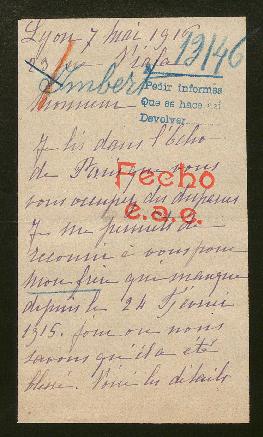 Lyon 7 mai 1916
13/46
Imbert
Pedir informes
Que se hace
Devolver
Monsieur
Je lis dans l'Echo
de Paris que vous
vous occupez des disparus
Fecho
e.a.e.
Je me permets de
recourir à vous pour
mon frère qui manque
depuis le 24 Février
1915. jour où nous
savons qu'il a été
blessé. Voici les détails